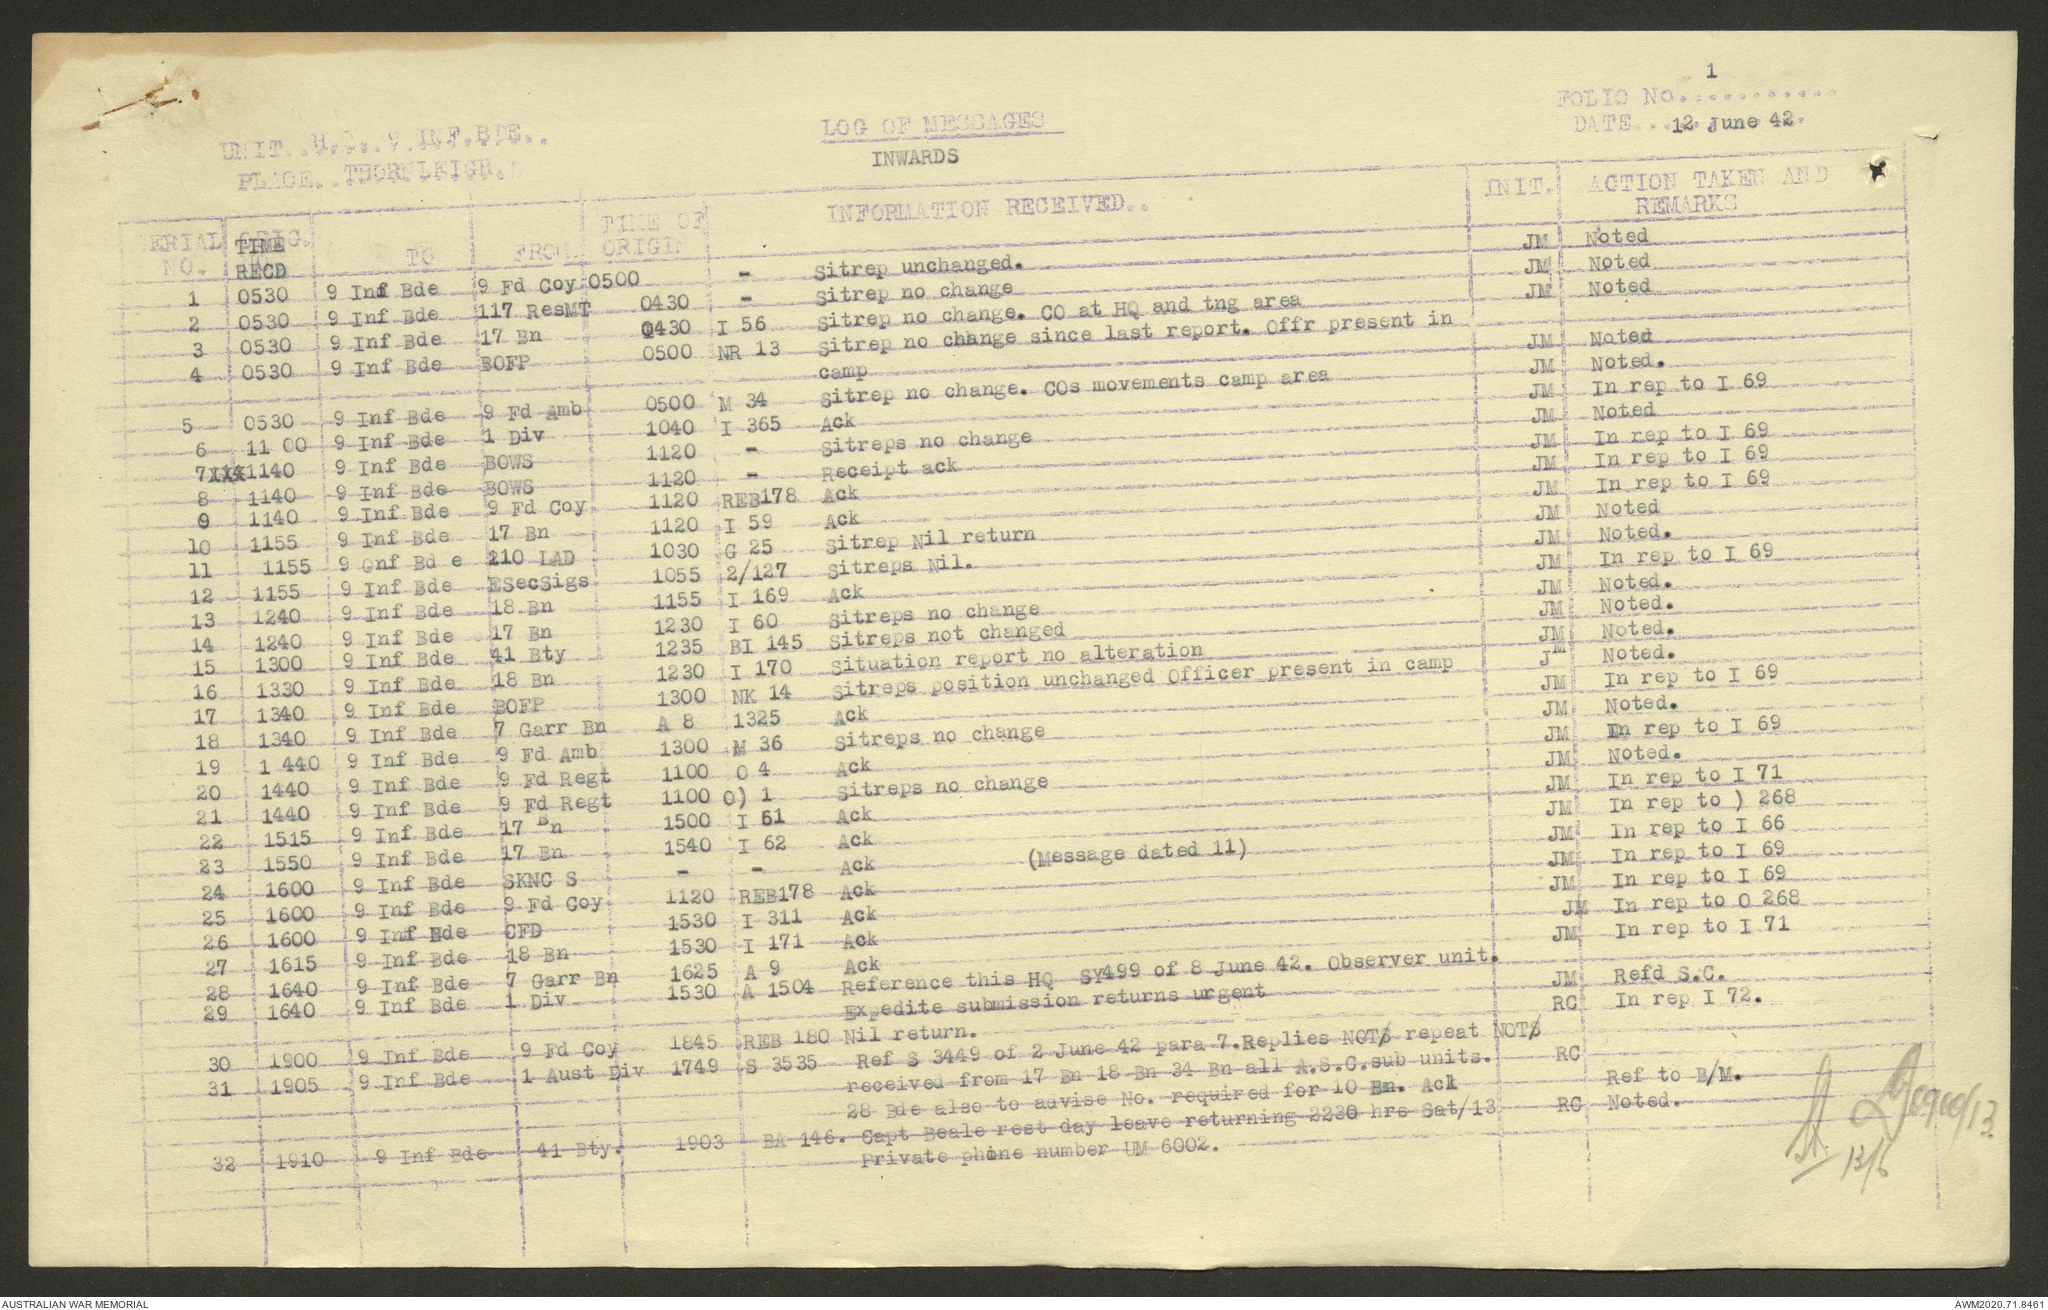 1
FOLIO No............
UNIT..H.Q..9 INF.BDE.. LOG OF MESSAGES DATE...12 June 42.
PLACE..THORNLEIGH. INWARDS
SERIAL NO. ORIG. TIME RECD TO FROM TIME OF ORIGIN INFORMATION RECEIVED.. INIT. ACTION TAKEN AND REMARKS
1 0530 9 Inf Bde 9 Fd Coy 0500 - Sitrep unchanged. JM Noted
2 0530 9 Inf Bde 117 ResMT 0430 - Sitrep no change JM Noted
3 0530 9 Inf Bde 17 Bn 0430 I 56 Sitrep no change. CO at HQ and tng area JM Noted
4 0530 9 Inf Bde BOFP 0500 NR 13 Sitrep no change since last report. Offr present in
camp JM Noted
5 0530 9 Inf Bde 9 Fd Amb 0500 M 34 Sitrep no change. COs movements camp area JM Noted.
6 11 00 9 Inf Bde 1 Div 1040 I 365 Ack JM In rep to I 69
7 1140 9 Inf Bde BOWS 1120 - Sitreps no change JM Noted
8 1140 9 Inf Bde BOWS 1120 - Receipt ack JM In rep to I 69
9 1140 9 Inf Bde 9 Fd Coy 1120 REB178 Ack JM In rep to I 69
10 1155 9 Inf Bde 17 Bn 1120 I 59 Ack JM In rep to I 69
11 1155 9 Onf Bd e 210 LAD 1030 G 25 Sitrep Nil return JM Noted
12 1155 9 Inf Bde ESecSigs 1055 2/127 Sitreps Nil. JM Noted.
13 1240 9 Inf Bde 18 Bn 1155 I 169 Ack JM In rep to I 69
14 1240 9 Inf Bde 17 Bn 1230 I 60 Sitreps no change JM Noted.
15 1300 9 Inf Bde 41 Bty 1235 BI 145 Sitreps not changed JM Noted.
16 1330 9 Inf Bde 18 Bn 1230 I 170 Situation report no alteration JM Noted.
17 1340 9 Inf Bde BOFP 1300 NK 14 Sitreps position unchanged Officer present in camp JM Noted.
18 1340 9 Inf Bde 7 Garr Bn A 8 1325 Ack JM In rep to I 69
19 1 440 9 Inf Bde 9 Fd Amb 1300 M 36 Sitreps no change JM Noted.
20 1440 9 Inf Bde 9 Fd Regt 1100 O 4 Ack JM In rep to I 69
21 1440 9 Inf Bde 9 Fd Regt 1100 O) 1 Sitreps no change JM Noted.
22 1515 9 Inf Bde 17 Bn 1500 I 61 Ack JM In rep to I 71
23 1550 9 Inf Bde 17 Bn 1540 I 62 Ack JM In rep to ) 268
24 1600 9 Inf Bde SKNC S - - Ack (Message dated 11) JM In rep to I 66
25 1600 9 Inf Bde 9 Fd Coy 1120 REB178 Ack JM In rep to I 69
26 1600 9 Inf Bde CFD 1530 I 311 Ack JM In rep to I 69
27 1615 9 Inf Bde 18 Bn 1530 I 171 Ack JM In rep to O 268
28 1640 9 Inf Bde 7 Garr Bn 1625 A 9 Ack JM In rep to I 71
29 1640 9 Inf Bde 1 Div 1530 A 1504 Reference this HQ SY499 of 8 June 42. Observer unit.
Expedite submission returns urgent JM Refd S.C.
30 1900 9 Inf Bde 9 Fd Coy 1845 REB 180 Nil return. RC In rep I 72.
31 1905 9 Inf Bde 1 Aust Div 1749 S 3535 Ref S 3449 of 2 June 42 para 7.Replies NOT repeat NOT
received from 17 Bn 18 Bn 34 Bn all A.S.C.sub units. RC
28 Bde also to advise No. required for 10 Bn. Ack Ref to B/M.
32 1910 9 Inf Bde 41 Bty. 1903 BA 146. Capt Beale rest day leave returning 2230 hrs Sat/13 RC Noted.
Private phone number UM 6002.
13/6
AUSTRALIAN WAR MEMORIAL AWM2020.71.8461